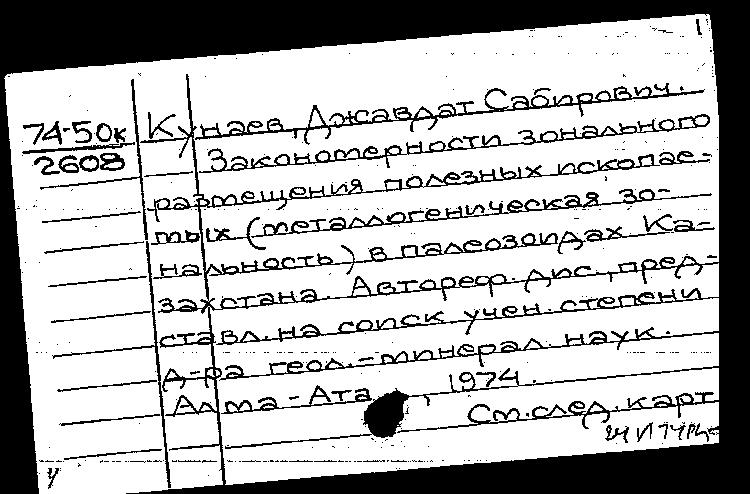 1
74-50к Кунаев, Джавдат Сабирович.
2608 Закономерности зонального
размещения полезных ископае-
мых (металлогеническая зо-
нальность) в палеозоидах Ка-
захстана. Автореф. дис., пред-
ставл. на соиск учен. степени
д-ра геол.-минерал. наук.
Алма-Ата, 1974.
См. след. карт